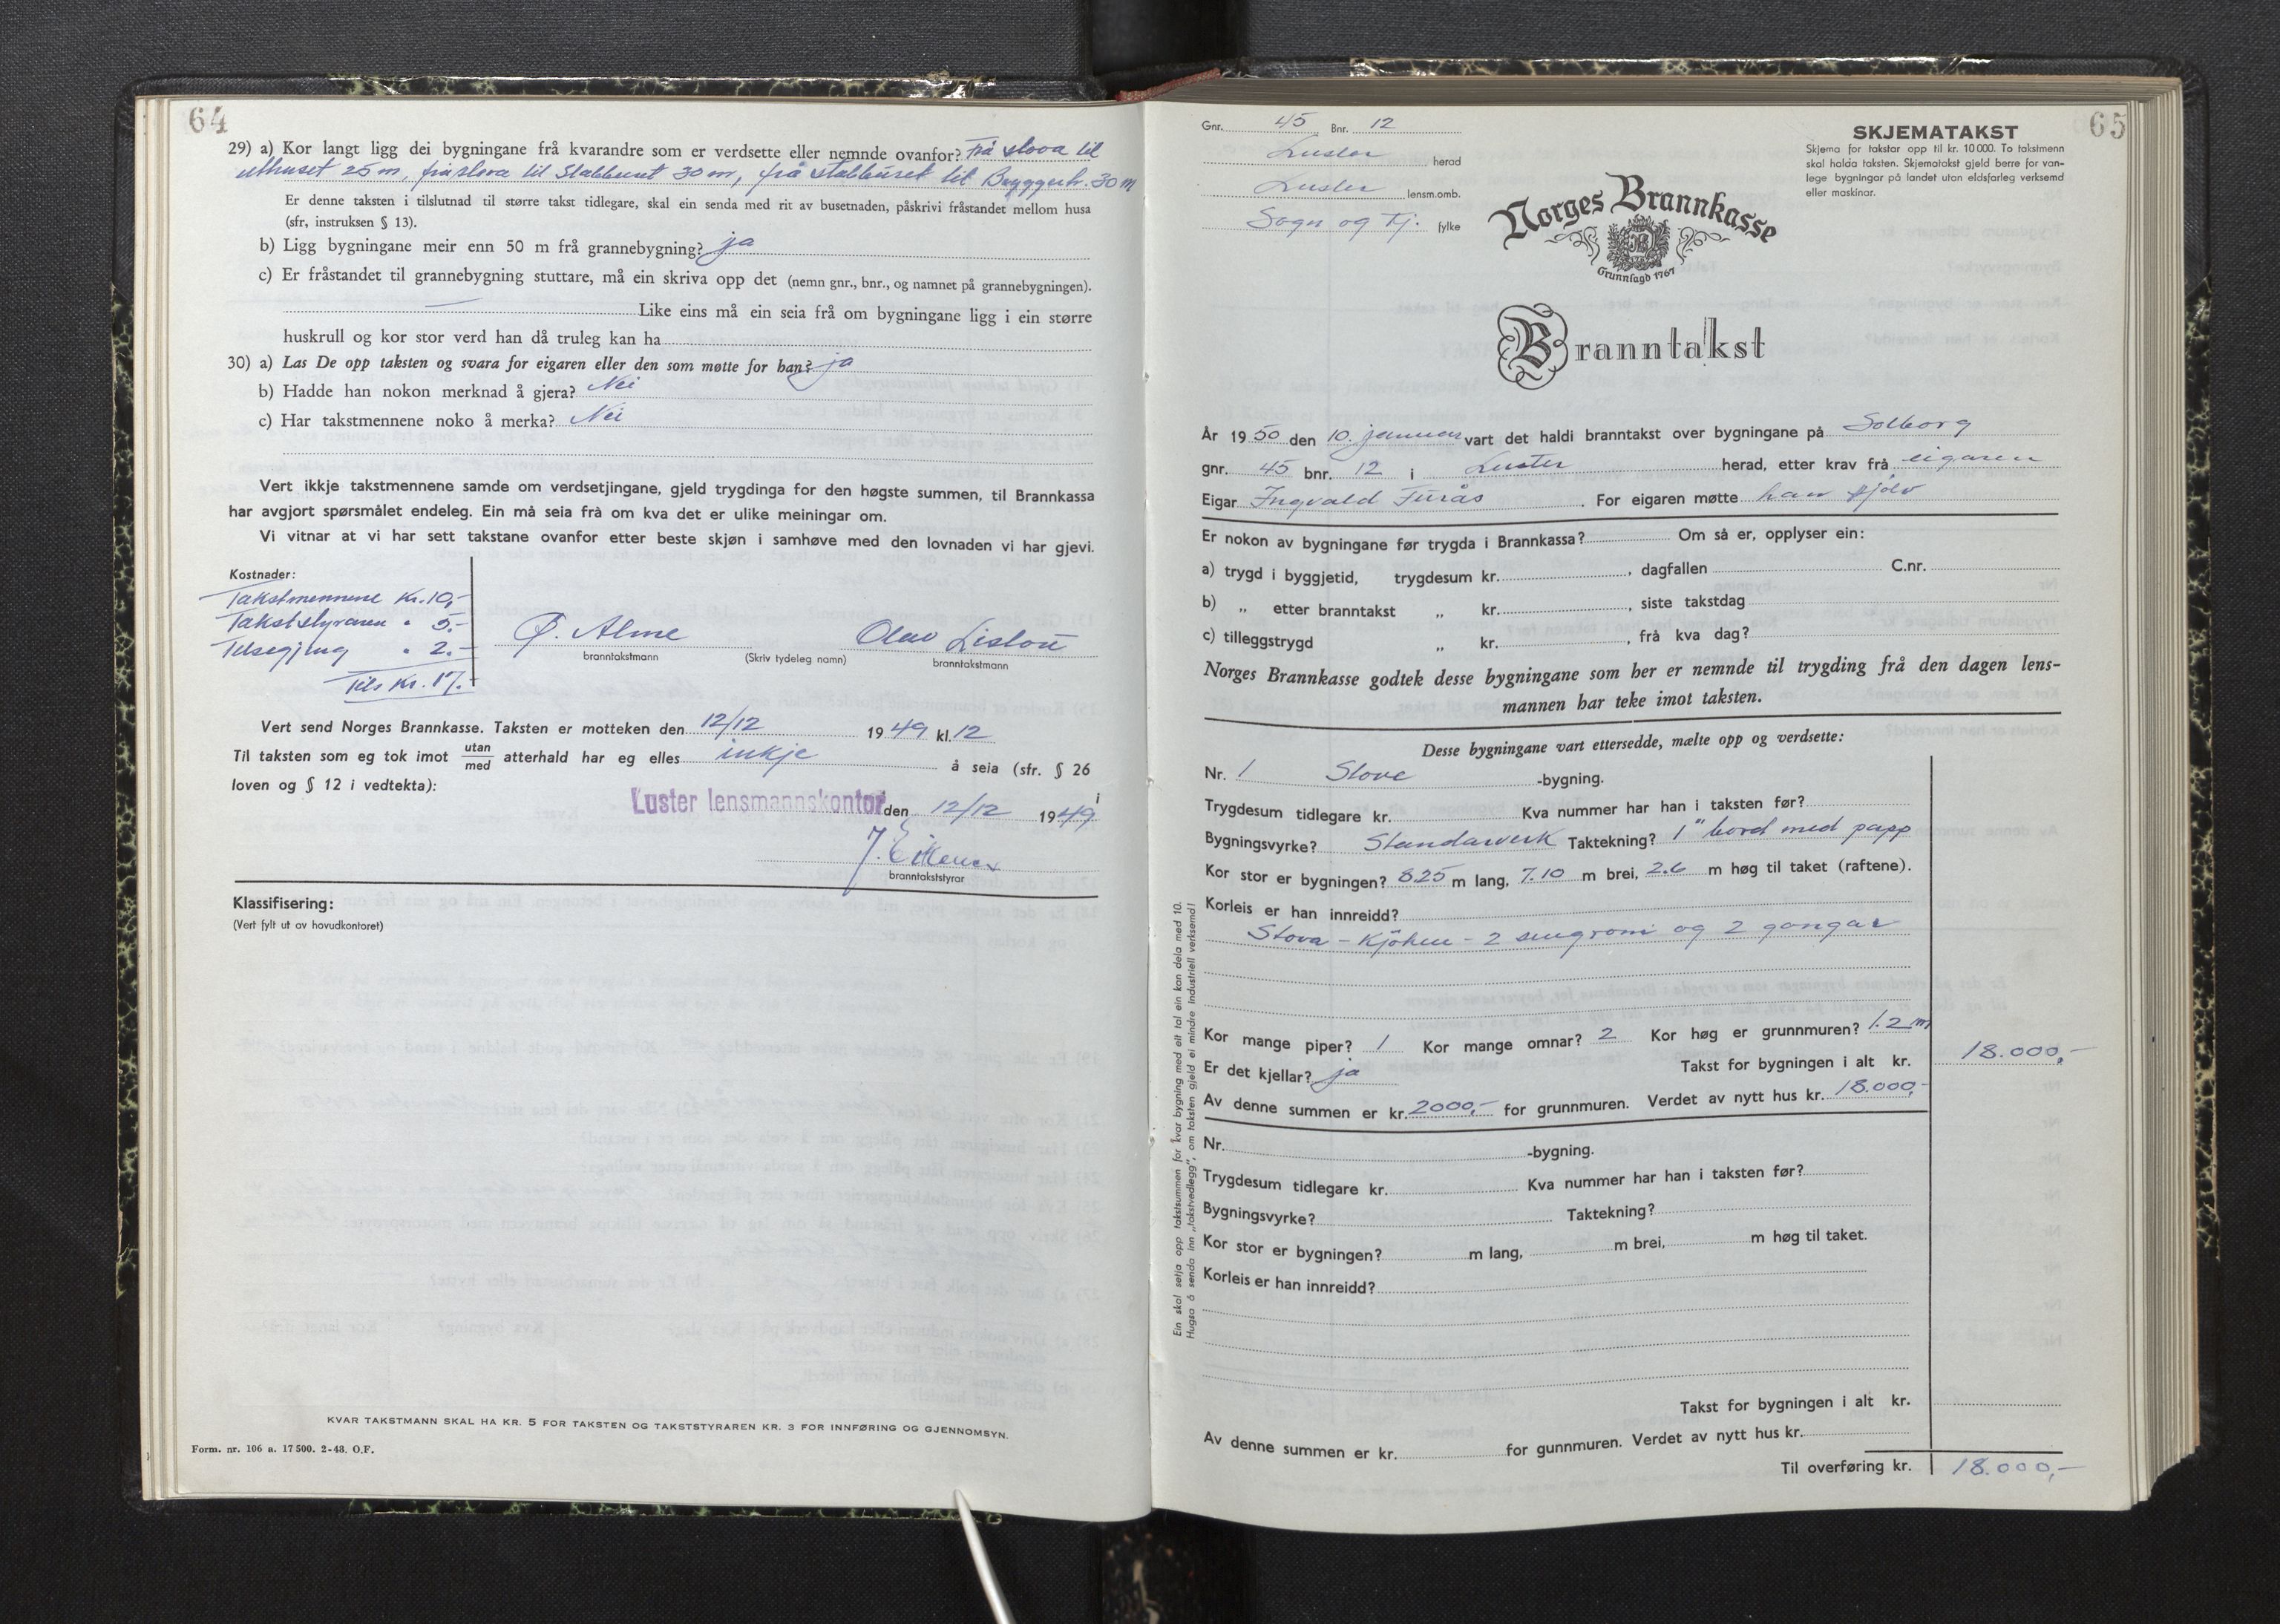 64
29) a) Kor langt ligg dei bygningane frå kvarandre som er verdsette eller nemnde ovanfor? Frå stova til
uthuset 25 m, frå stova til Stabburet 30 m, frå stabburet til 30 m
Er denne taksten i tilslutnad til større takst tidlegare, skal ein senda med rit av busetnaden, påskrivi fråstandet mellom husa
(sfr, instruksen § 13).
b) Ligg bygningane meir enn 50 m frå grannebygning? ja
c) Er fråstandet til grannebygning stuttare, må ein skriva opp det (nemn gnr., bnr., og namnet på grannebygningen).
— Like eins må ein seia frå om bygningane ligg i ein større
huskrull og kor stor verd han då truleg kan ha
30) a) Las De opp taksten og svara for eigaren eller den som møtte for han? ja
b) Hadde han nokon merknad å gjera? Nei
c) Har takstmennene noko å merka? Nei
Vert ikkje takstmennene samde om verdsetjingane, gjeld trygdinga for den høgste summen, til Brannkassa
har avgjort spørsmålet endeleg. Ein må seia frå om kva det er ulike meiningar om.
Vi vitnar at vi har sett takstane ovanfor etter beste skjøn i samhøve med den lovnaden vi har gjevi.
Kostnader:
Takstmennene Kr. 10,-
Takststyraren " 5.-
Tilsegjing " 2.-
Tils Kr. 17.-
Ø. Alme Olav
branntakstmann (Skriv tydeleg namn) branntakstmann
Vert send Norges Brannkasse. Taksten er motteken den 12/12 1949 kl. 12
Til taksten som eg tok imot utan/med atterhald har eg elles inkje å seia (sfr. § 26
loven og § 12 i vedtekta):
Luster lensmannskontor i den 12/12 1949
branntakststyrar
Klassifisering:
(Vert fylt ut av hovudkontoret)
KVAR TAKSTMANN SKAL HA KR. 5 FOR TAKSTEN OG TAKSTSTYRAREN KR. 3 FOR INNFØRING OG GJENNOMSYN.
Form. nr. 106 a. 17 500. 2-48. O.F.
65
Gnr. 45 Bnr. 12
Luster herad
Luster lensm.omb.
Sogn og Fj. fylke
SKJEMATAKST
Skjema for takstar opp til kr. 10 000. To takstmenn
skal halda taksten. Skjematakst gjeld berre for van-
lege bygningar på landet utan eldsfarleg verksemd
eller maskinar.
Norges Brannkasse
Grunnlagd 1767
Branntakst
År 1950 den 10. januar vart det haldi branntakst over bygningane på Solborg
gnr. 45 bnr. 12 i Luster herad, etter krav frå eigaren
Eigar Ingvald Furås. For eigaren møtte han sjølv
Er nokon av bygningane før trygda i Brannkassa? Om så er, opplyser ein:
a) trygd i byggjetid, trygdesum kr. , dagfallen C.nr.
b) „ etter branntakst „ kr. , siste takstdag
c) tilleggstrygd „ kr. , frå kva dag?
Norges Brannkasse godtek desse bygningane som her er nemnde til trygding frå den dagen lens-
mannen har teke imot taksten.
Desse bygningane vart ettersedde, mælte opp og verdsette:
Nr. 1 Stove -bygning.
Trygdesum tidlegare kr. Kva nummer har han i taksten før?
Bygningsvyrke? Standarverk Taktekning? 1" bord med papp
Kor stor er bygningen? 8.25 m lang, 7.10 m brei, 2.6 m høg til taket (raftene).
Korleis er han innreidd?
Stova - Kjøken - 2 sengrom og 2 gangar
Kor mange piper? 1 Kor mange omnar? 2 Kor høg er grunnmuren? 1.2 m
Er det kjellar? ja Takst for bygningen i alt kr. 18.000,-
Av denne summen er kr. 2000,- for grunnmuren. Verdet av nytt hus kr. 18.000,-
Nr. -bygning.
Trygdesum tidlegare kr. Kva nummer har han i taksten før?
Bygningsvyrke? Taktekning?
Kor stor er bygningen? m lang, m brei, m høg til taket.
Korleis er han innreidd?
Takst for bygningen i alt kr.
Av denne summen er kr. for gunnmuren. Verdet av nytt hus kr.
Til overføring kr. 18.000,-
Ein skal setja opp takstsummen for kvar bygning med eit tal ein kan dela med 10.
Hugsa å senda inn „takstvedlegg", om taksten gjeld ei mindre industriell verksemd!